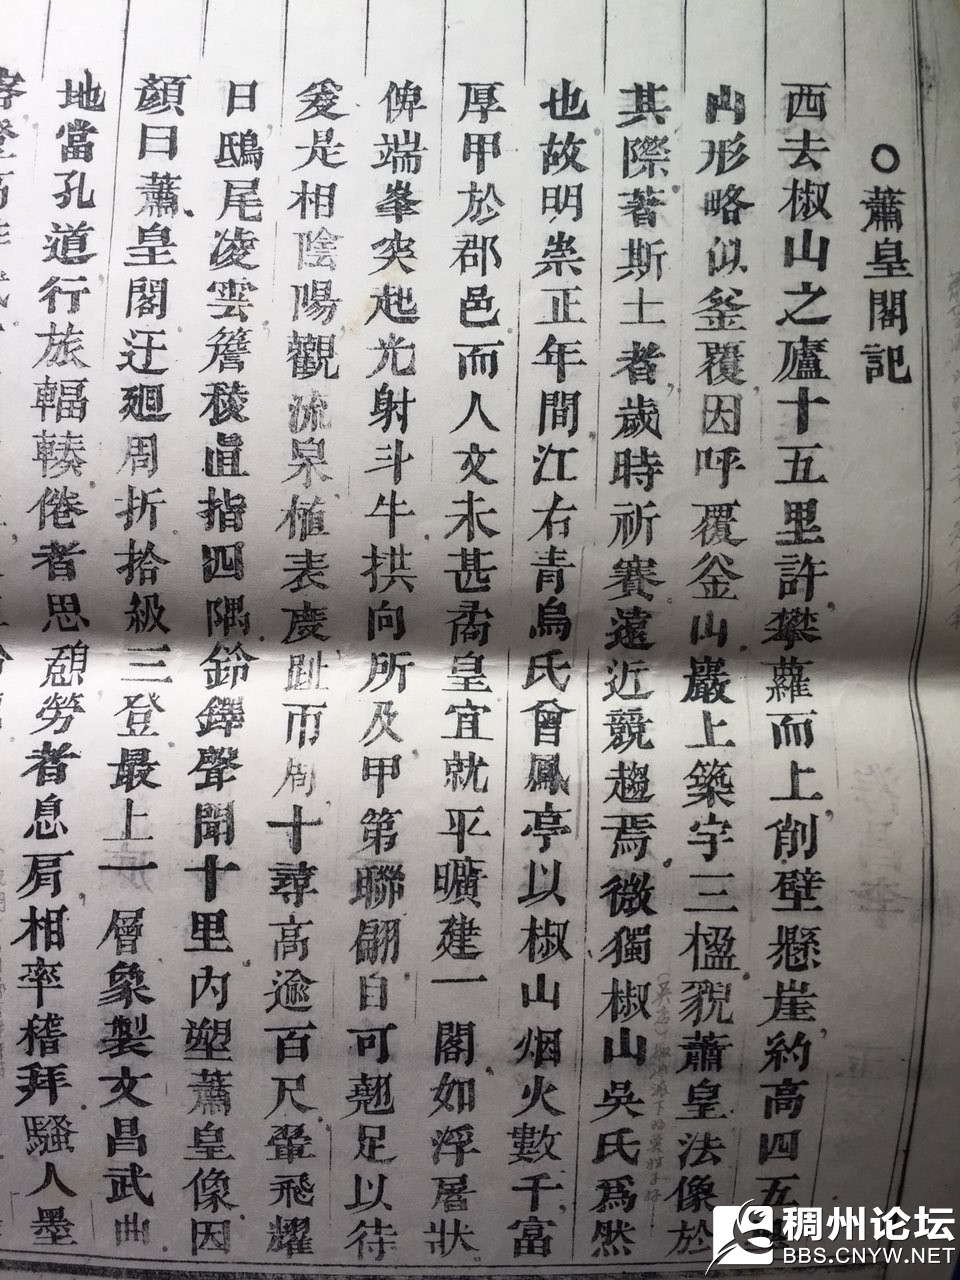 ○蕭皇閣記
西去椒山之廬十五里許攀蘿而上削壁懸崖約高四五
山形略似釜覆因呼覆釜山巖上築宇三楹貎蕭皇法像於
其際著斯土者歲時祈賽遠近競趨焉微獨椒山吳氏爲然
也故明崇正年間江右青烏氏曾鳳亭以椒山烟火數千富
厚甲於郡邑而人文未甚矞皇宜就平曠建一閣如浮屠狀
俾端峯突起光射斗牛拱向所及甲第聯翩自可翹足以待
爰是相陰陽觀流泉植表度趾帀周十尋高逾百尺翬飛耀
日鴟尾凌雲簷稜直指四隅鈴鐸聲聞十里內塑蕭皇像因
顏曰蕭皇閣迂廻周折拾級三登最上一層象製文昌武曲
地當孔道行旅輻輳倦者思憩勞者息肩相率稽拜騷人墨
稠州论坛
BBS.CNYW.NET